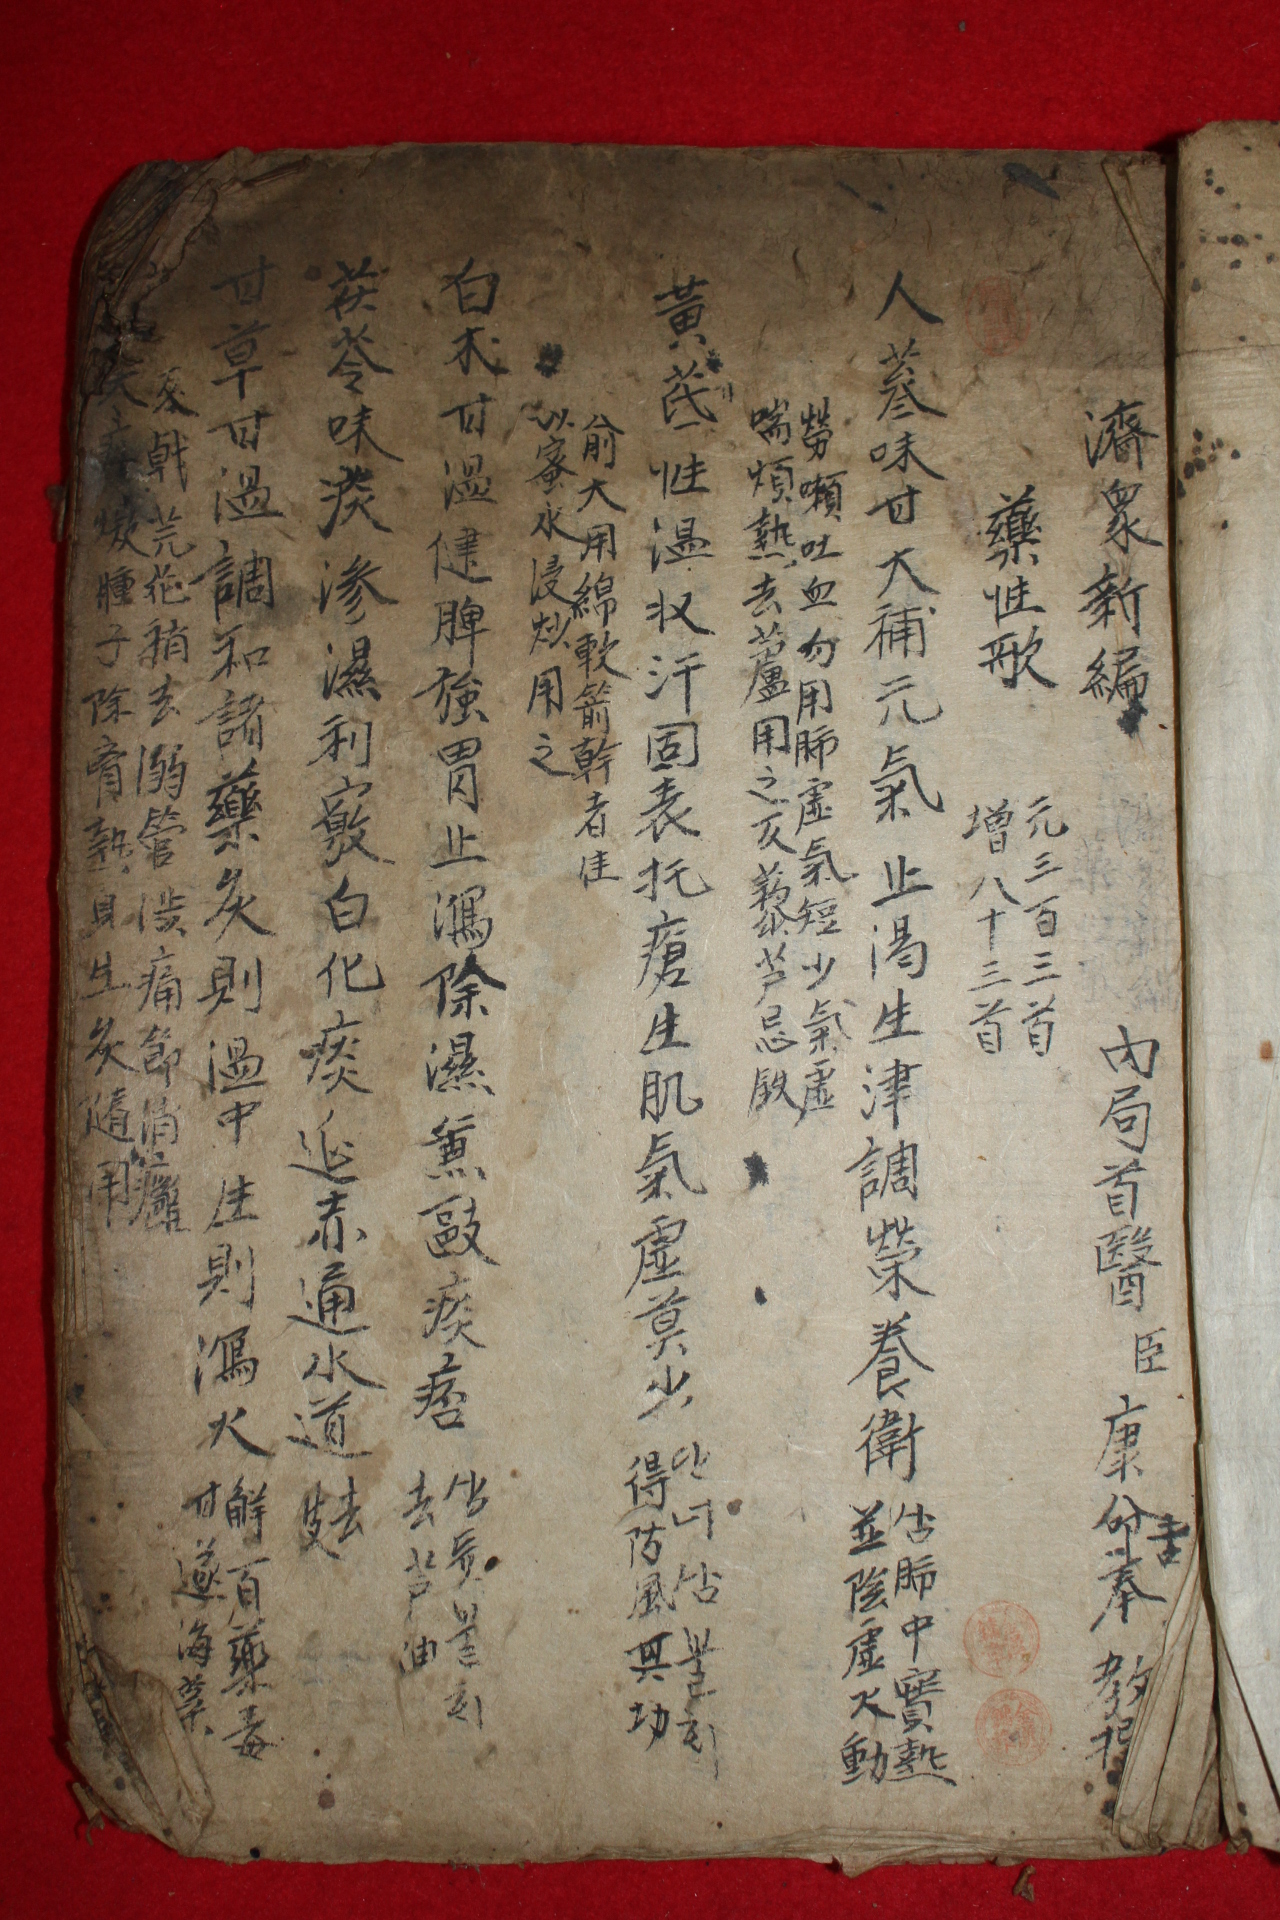 濟衆新編
內局首醫 臣 康命吉奉 教撰
藥性歌
元三百三首
增八十三首
人蔘味甘大補元氣止渴生津調榮養衛
肺中實熱
並陰虛火動
勞嗽吐血勿用肺虛氣短少氣虛
喘煩熱去蘆用之反藜芦忌
黃茋性溫收汗固表托瘡生肌氣虛莫少
得防風其功
愈大用綿軟箭幹者佳
以蜜水浸炒用之
白朮甘溫健脾強胃止瀉除濕兼敺痰痞
去芦油
茯苓味淡滲濕利竅白化痰涎赤通水道
去皮
甘草甘溫調和諸藥炙則溫中生則瀉火
解百藥毒
甘遂海菜
戟芫花稍去溺管澁痛節消癰
腫子除膏熱身生炙隨用